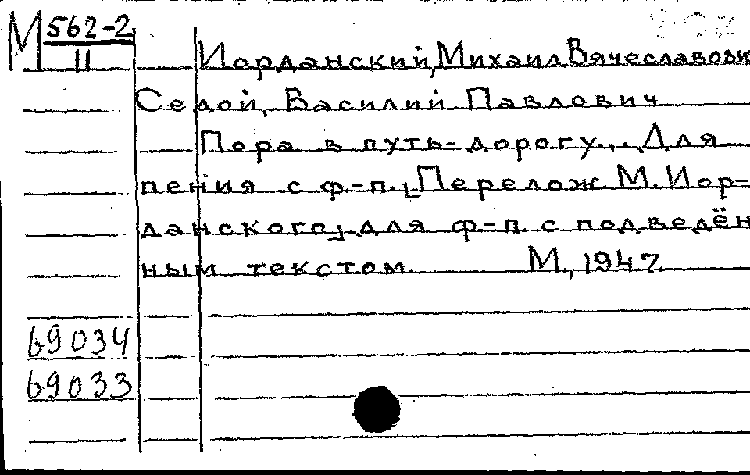 М 562-2
II
Иорданский, Михаил Вячеславови
Седой, Василий Павлович
Пора в путь-дорогу... Для
пения с ф-п. [Перелож М. Иор-
данского] для ф-п. с подведён
ным текстом. М., 1947.
69034
69033